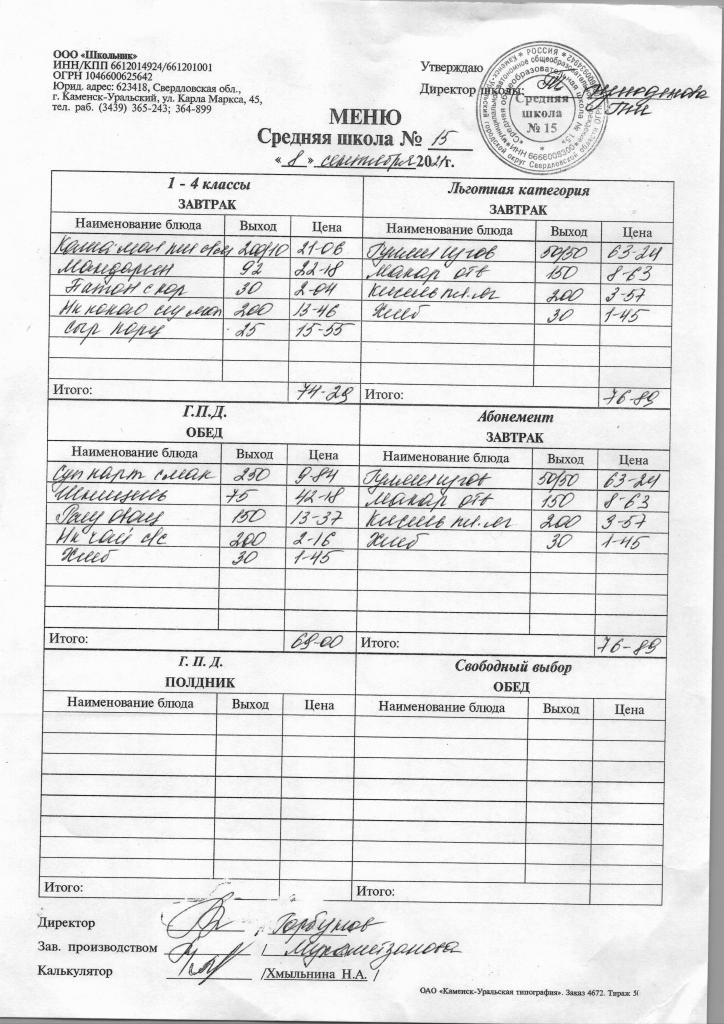 ООО «Школьник»
ИНН/КПП 6612014924/661201001
ОГРН 1046600625642
Юрид. адрес: 623418, Свердловская обл.,
г. Каменск-Уральский, ул. Карла Маркса, 45,
тел. раб. (3439) 365-243; 364-899
Утверждаю
Директор школы:
РОССИЯ
Средняя
школа
№ 15
МЕНЮ
Средняя школа № 15
« 8 » сентября 2021г.
1 - 4 классы
ЗАВТРАК
Льготная категория
ЗАВТРАК
Наименование блюда Выход Цена Наименование блюда Выход Цена
Каша 200/10 21-06 50/50 63-24
Мандарин 92 22-18 Макар отв 150 8-63
Батон с кор 30 2-04 Кисель пл.яг 200 3-57
Нк какао 200 13-46 Хлеб 30 1-45
Сыр порц 25 15-55
Итого: 74-29 Итого: 76-89
Г.П.Д.
ОБЕД
Абонемент
ЗАВТРАК
Наименование блюда Выход Цена Наименование блюда Выход Цена
Суп карт с мак 250 9-84 50/50 63-24
Шницель 75 42-18 Макар отв 150 8-63
Рагу овощ 150 13-37 Кисель пл.яг 200 3-57
Нк чай с/с 200 2-16 Хлеб 30 1-45
Хлеб 30 1-45
Итого: 69-00 Итого: 76-89
Г. П. Д.
ПОЛДНИК
Свободный выбор
ОБЕД
Наименование блюда Выход Цена Наименование блюда Выход Цена
Итого: Итого:
Директор Горбунов
Зав. производством / Мухаметзанова
Калькулятор /Хмыльнина Н.А. /
ОАО «Каменск-Уральская типография». Заказ 4672. Тираж